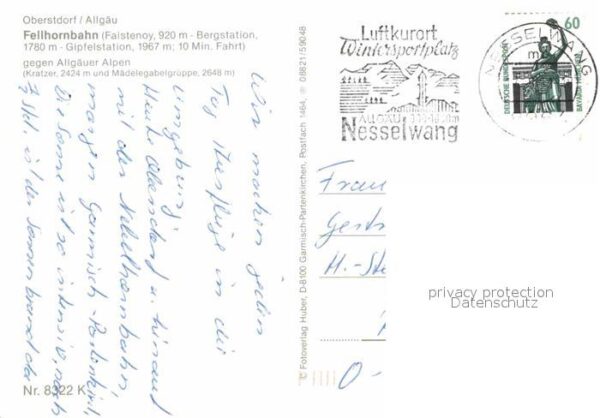 Oberstdorf / Allgäu
Fellhornbahn (Faistenoy, 920 m - Bergstation,
1780 m - Gipfelstation, 1967 m; 10 Min. Fahrt)
gegen Allgäuer Alpen
(Kratzer, 2424 m und Mädelegabelgruppe, 2648 m)
Wir machen jeden
Tag Ausflüge in die
Umgebung.
Heute Oberstdorf u. hinauf
mit der Nebelhornbahn,
morgen Garmisch-Partenkirch
Die Sonne ist so intensiv, nach
2 Std. ist der Sonnenbrand da
Nr. 8322 K
© Fotoverlag Huber, D-8100 Garmisch-Partenkirchen, Postfach 1464, ☏ 08821/59048
Luftkurort
Wintersportplatz
ALLGÄU
Nesselwang
NESSELWANG
60
DEUTSCHE BUNDESPOST
BAVARIA MÜNCHEN
Frau
H.-Ste
O-
privacy protection
Datenschutz